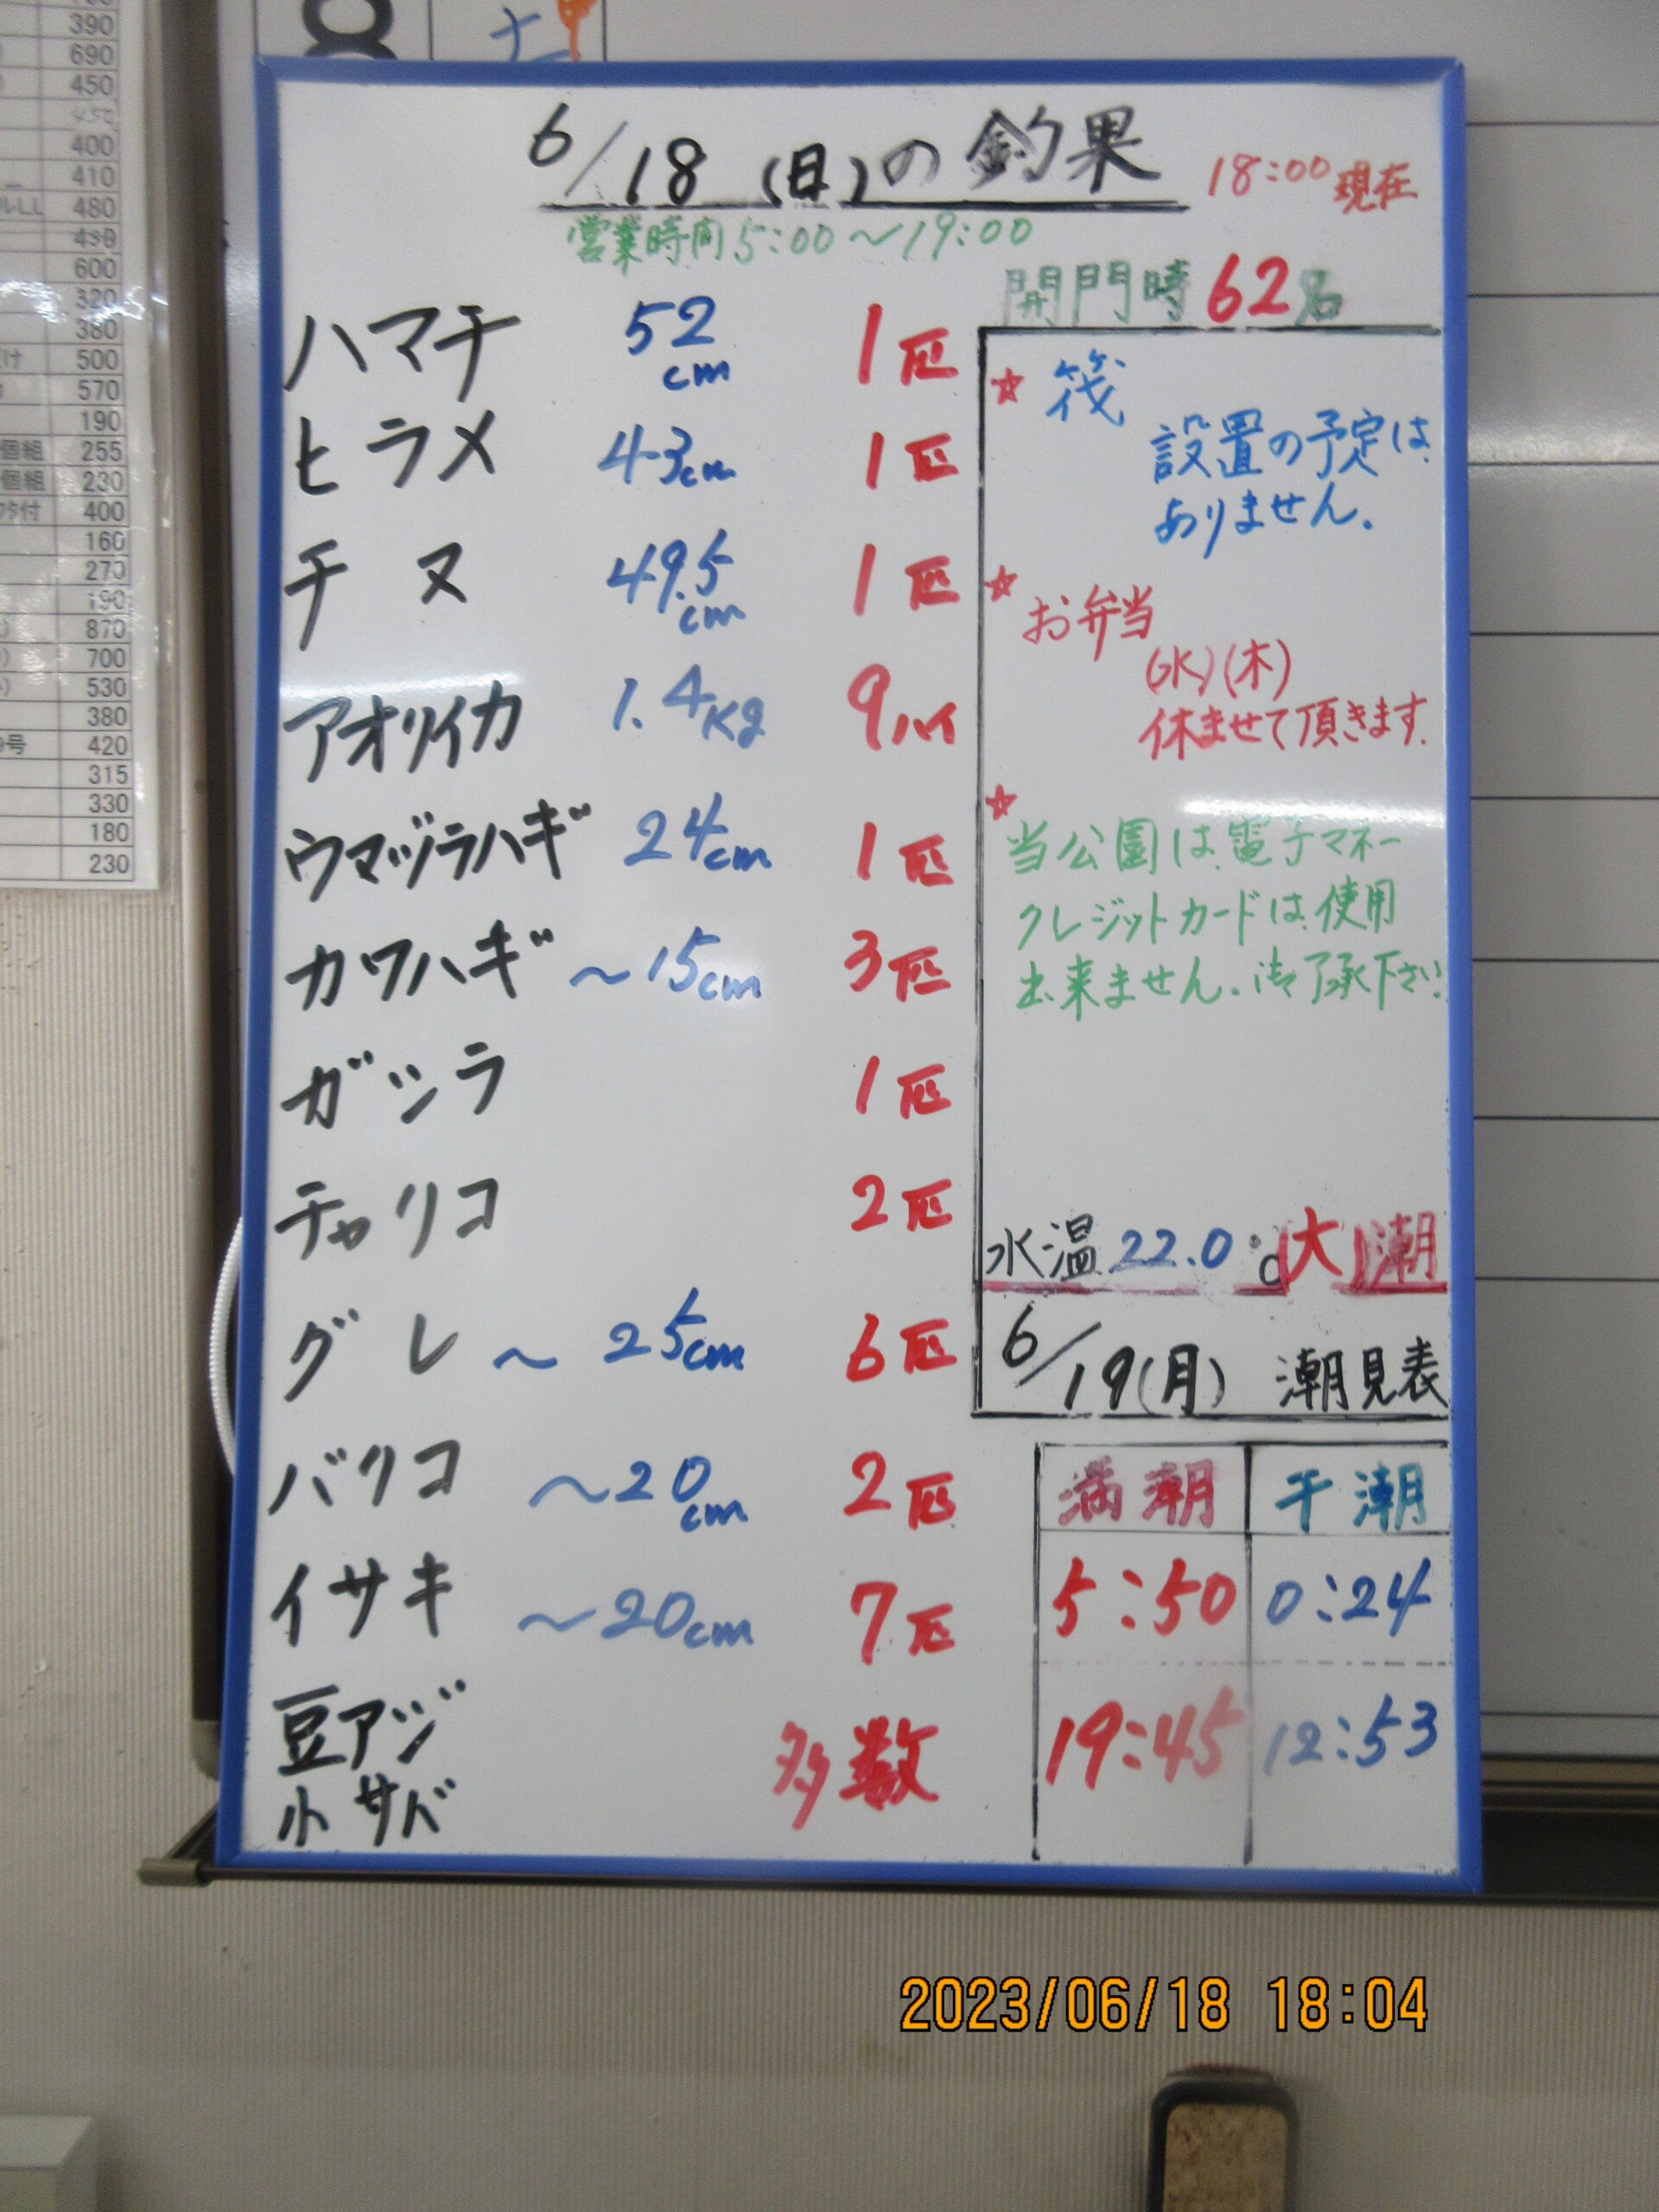 390
690
450
400
410
ルLL 480
490
600
320
380
500
570
190
個組 255
個組 230
400
160
270
190
870
700
530
380
号 420
315
330
180
230
6/18 (日)の釣果
18:00現在
営業時間5:00～19:00
開門時 62名
ハマチ 52cm 1匹
ヒラメ 43cm 1匹
チヌ 49.5cm 1匹
アオリイカ 1.4Kg 9ハイ
ウマヅラハギ 24cm 1匹
カワハギ ～15cm 3匹
ガシラ 1匹
チャリコ 2匹
グレ ～25cm 6匹
バリコ ～20cm 2匹
イサキ ～20cm 7匹
豆アジ
小サバ
多数
☆筏
設置の予定は
ありません.
☆お弁当
(水)(木)
休ませて頂きます.
☆
当公園は電子マネー
クレジットカードは使用
出来ません.御了承下さい
水温22.0℃(大)潮
6/19(月) 潮見表
満潮 干潮
5:50 0:24
19:45 12:53
2023/06/18 18:04